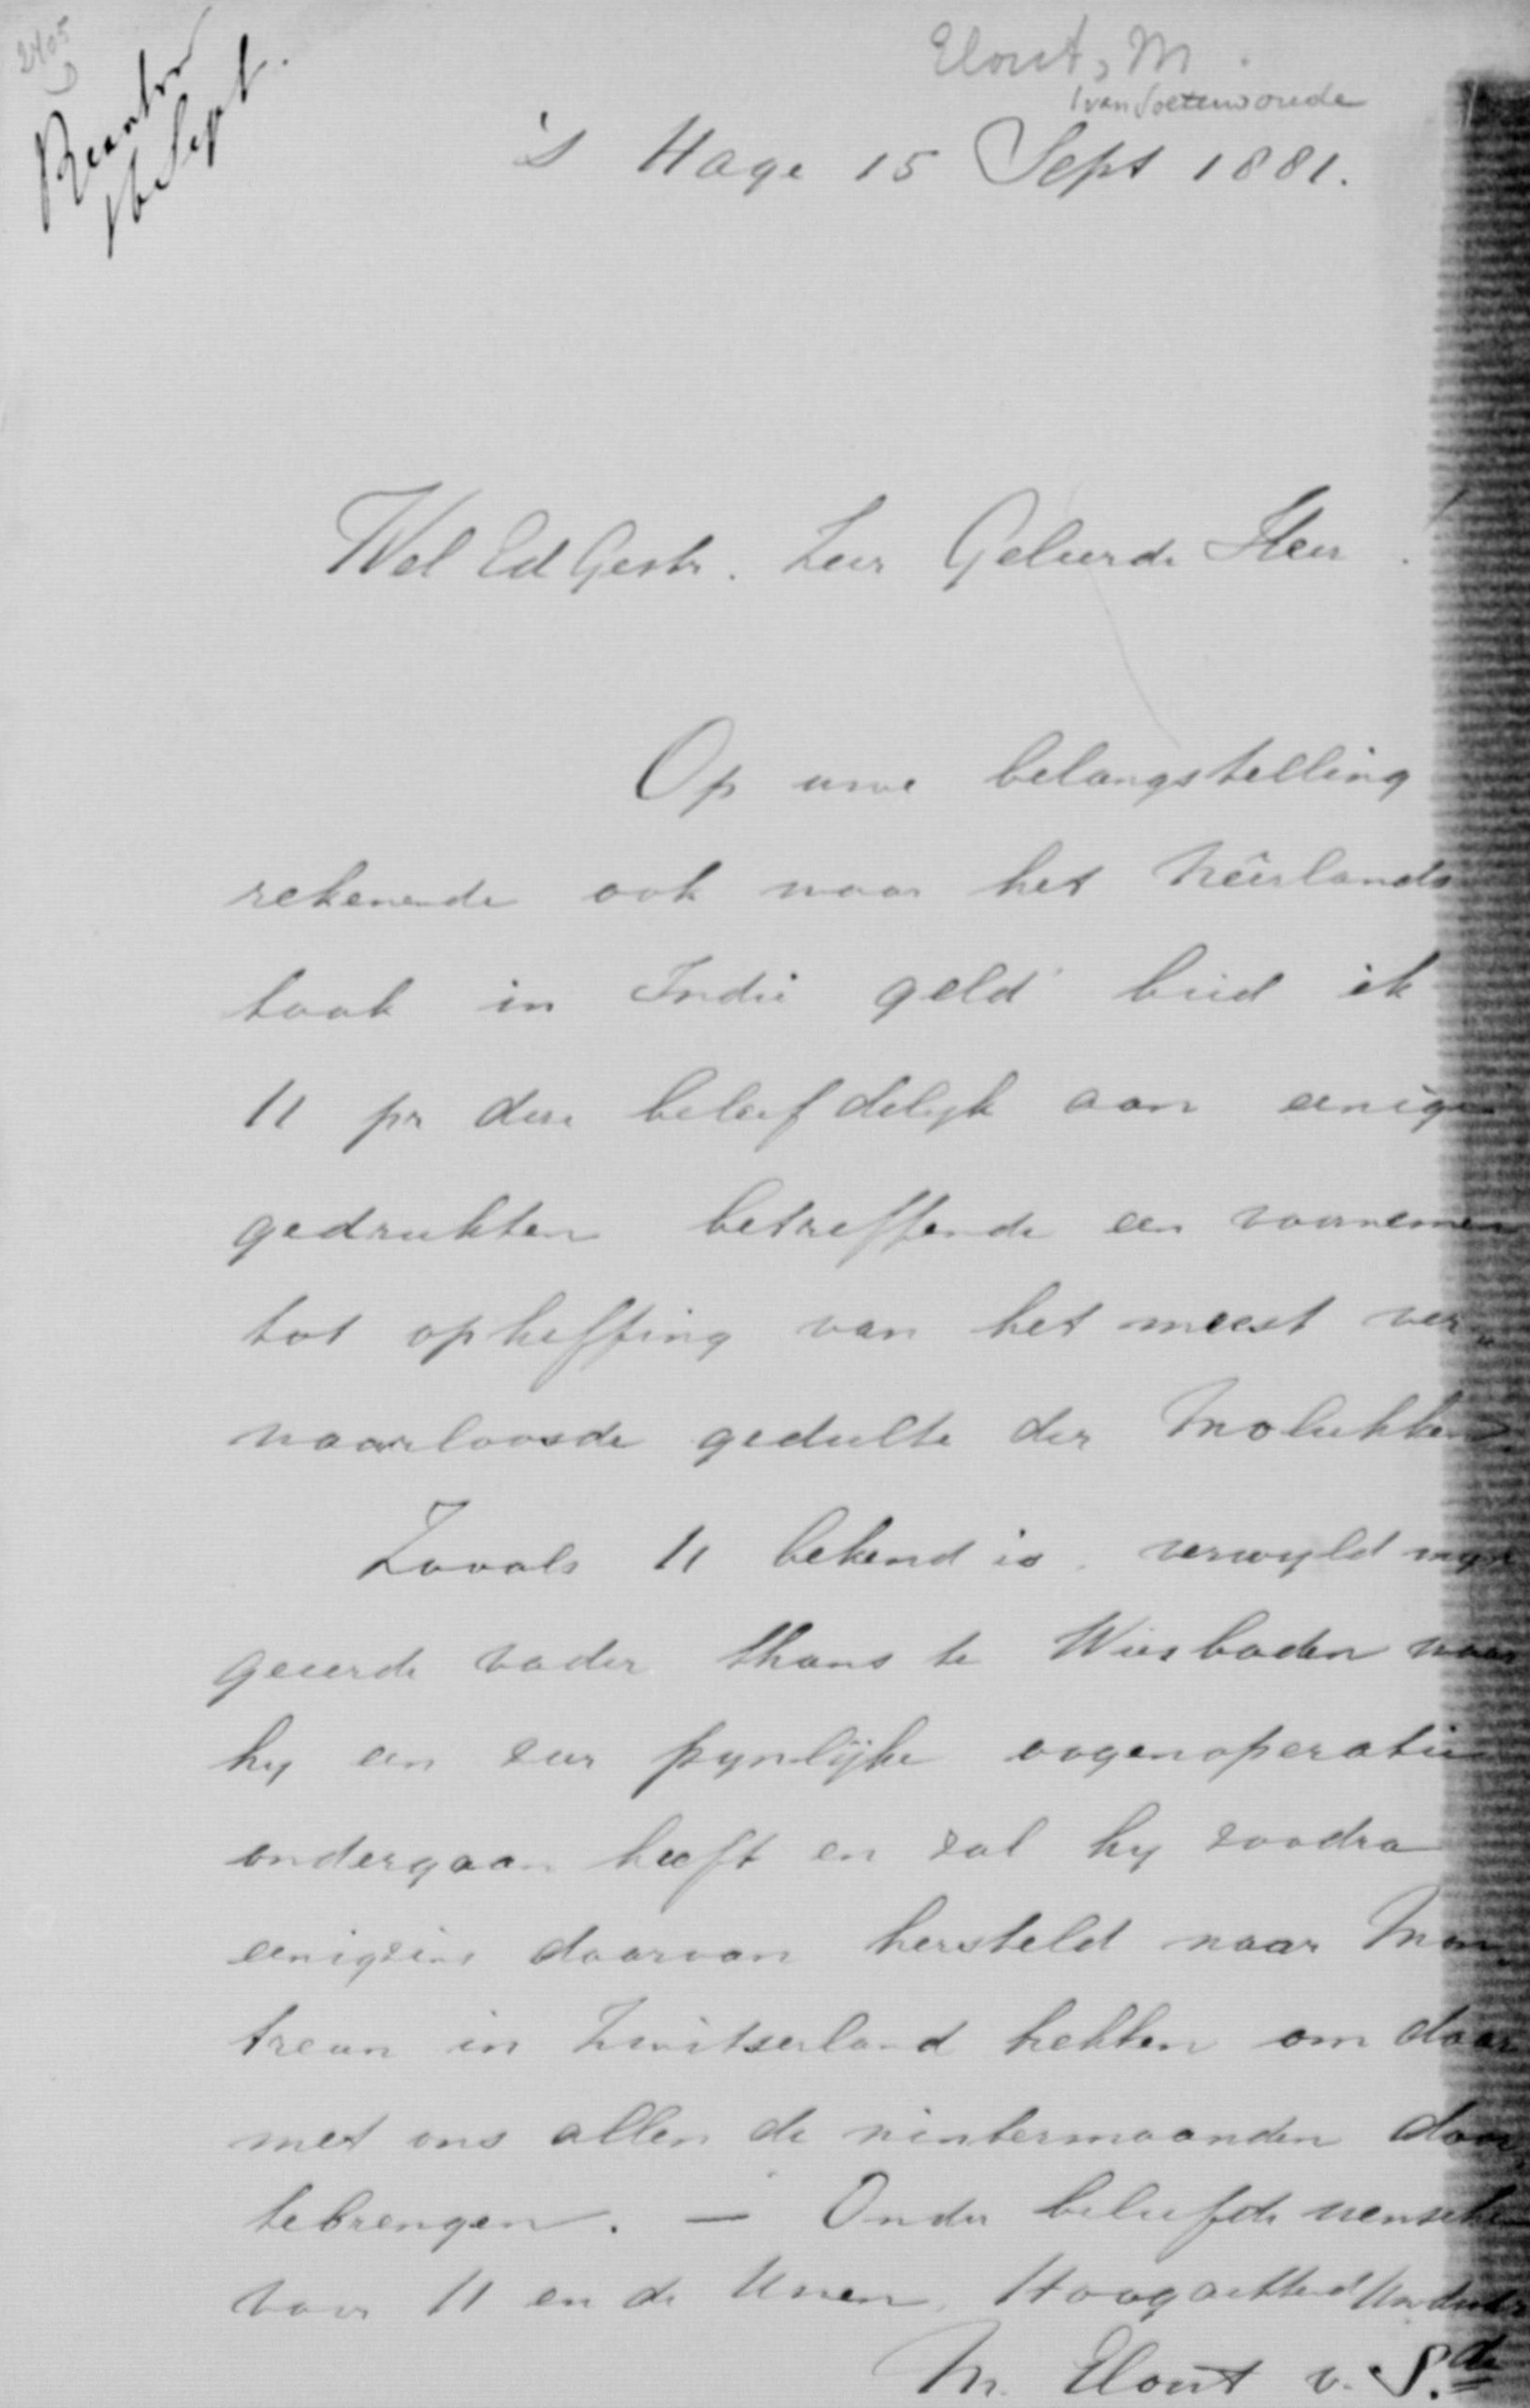 2405
Beantw
16 Sept.
Elout, M.
(van Soeterwoude
's Hage 15 Sept 1881.
Wel Ed Gestr. Zeer Geleerde Heer!
Op uwe belangstelling
rekenende ook waar het Neêrlands
taak in Indië geld bied ik
U pr deze beleefdelyk aan eenige
gedrukten betreffende een voornemen
tot opheffing van het meest ver„
waarloosde gedeelte der Molukken
Zooals U bekend is verwyld myn
geeerde vader thans te Wiesbaden waar
hy een zeer pynlijke oogenoperatie
ondergaan heeft en zal hy zoodra
eenigzins daarvan hersteld naar Mon„
treux in Zwitserland trekken om daar
met ons allen de wintermaanden door
tebrengen. — Onder beleefde wenschen
voor U en de Uwen, Hoogachtend UwEdGestr
M. Elout v. S.de